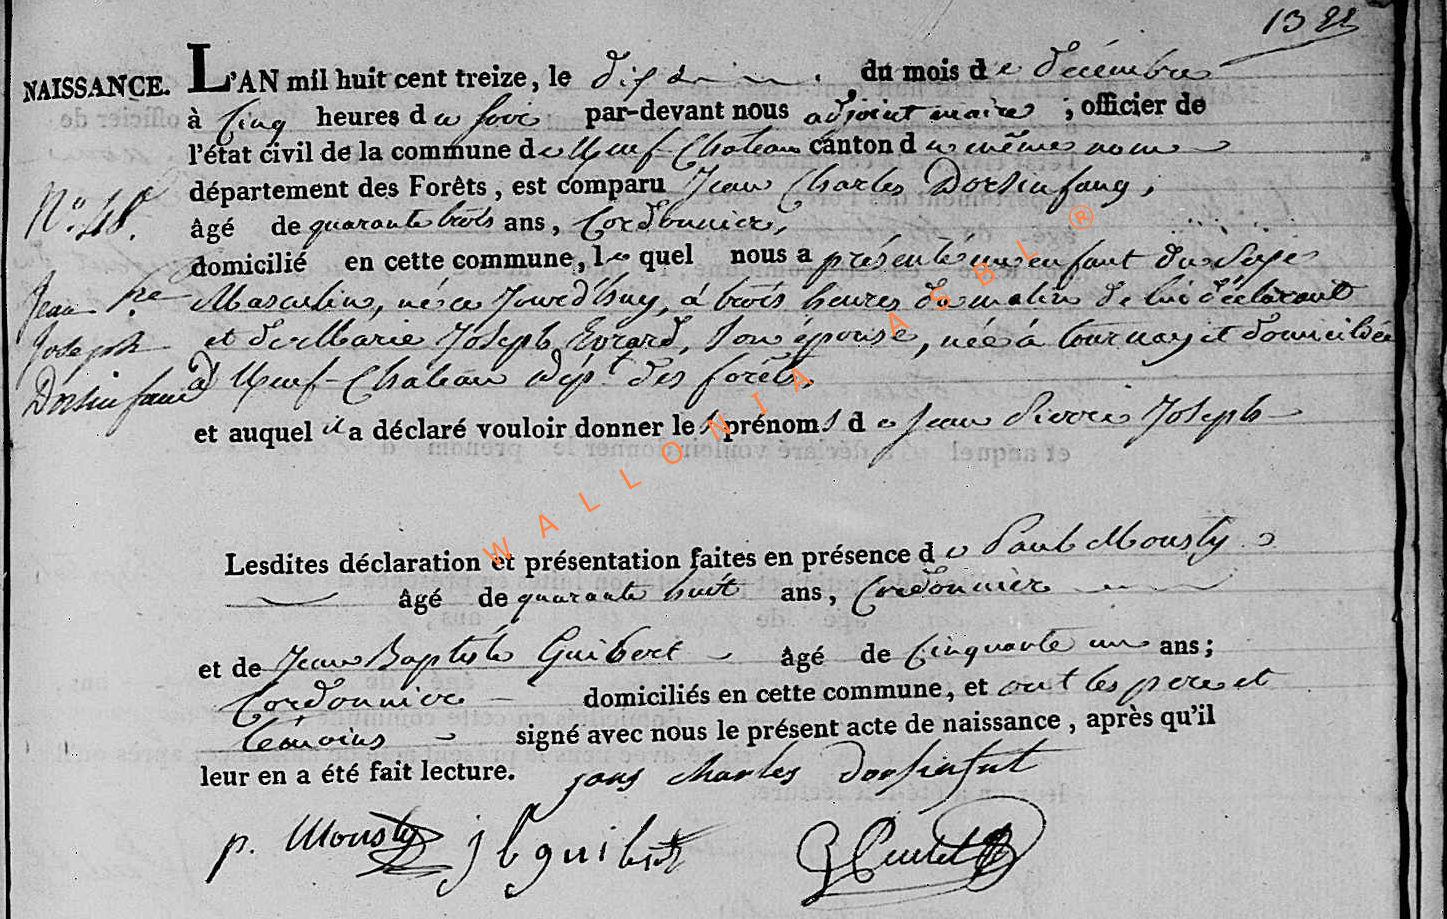 1322
NAISSANCE. L'AN mil huit cent treize, le du mois de décembre
à Cinq heures du soir par-devant nous adjoint maire ; officier de
l'état civil de la commune de Neuf-Chateau canton du même nom
département des Forêts, est comparu Jean Charles Dorsinfang,
N.° 48.
âgé de quarante trois ans, Cordonnier,
domicilié en cette commune, le quel nous a présenté un enfant du Sexe
Jean Pre Joseph Dorsinfaud
Masculin, né ce Jourd'huy, à trois heures du matin de lui déclarant
et de Marie Joseph Evrard, son épouse, née à tournay et domiciliée
à Neuf-Chateau dept. des forêts,
et auquel il a déclaré vouloir donner les prénoms de Jean Pierre Joseph
Lesdites déclaration et présentation faites en présence de Paul Mousty
âgé de quarante huit ans, Cordonnier
et de Jean Baptiste Guibert âgé de Cinquante un ans;
Cordonnier domiciliés en cette commune, et ont les pere et
témoins signé avec nous le présent acte de naissance, après qu'il
leur en a été fait lecture. jans charles dorsinfut
p. Mousty j b guibert
WALLONIA ASBL ®